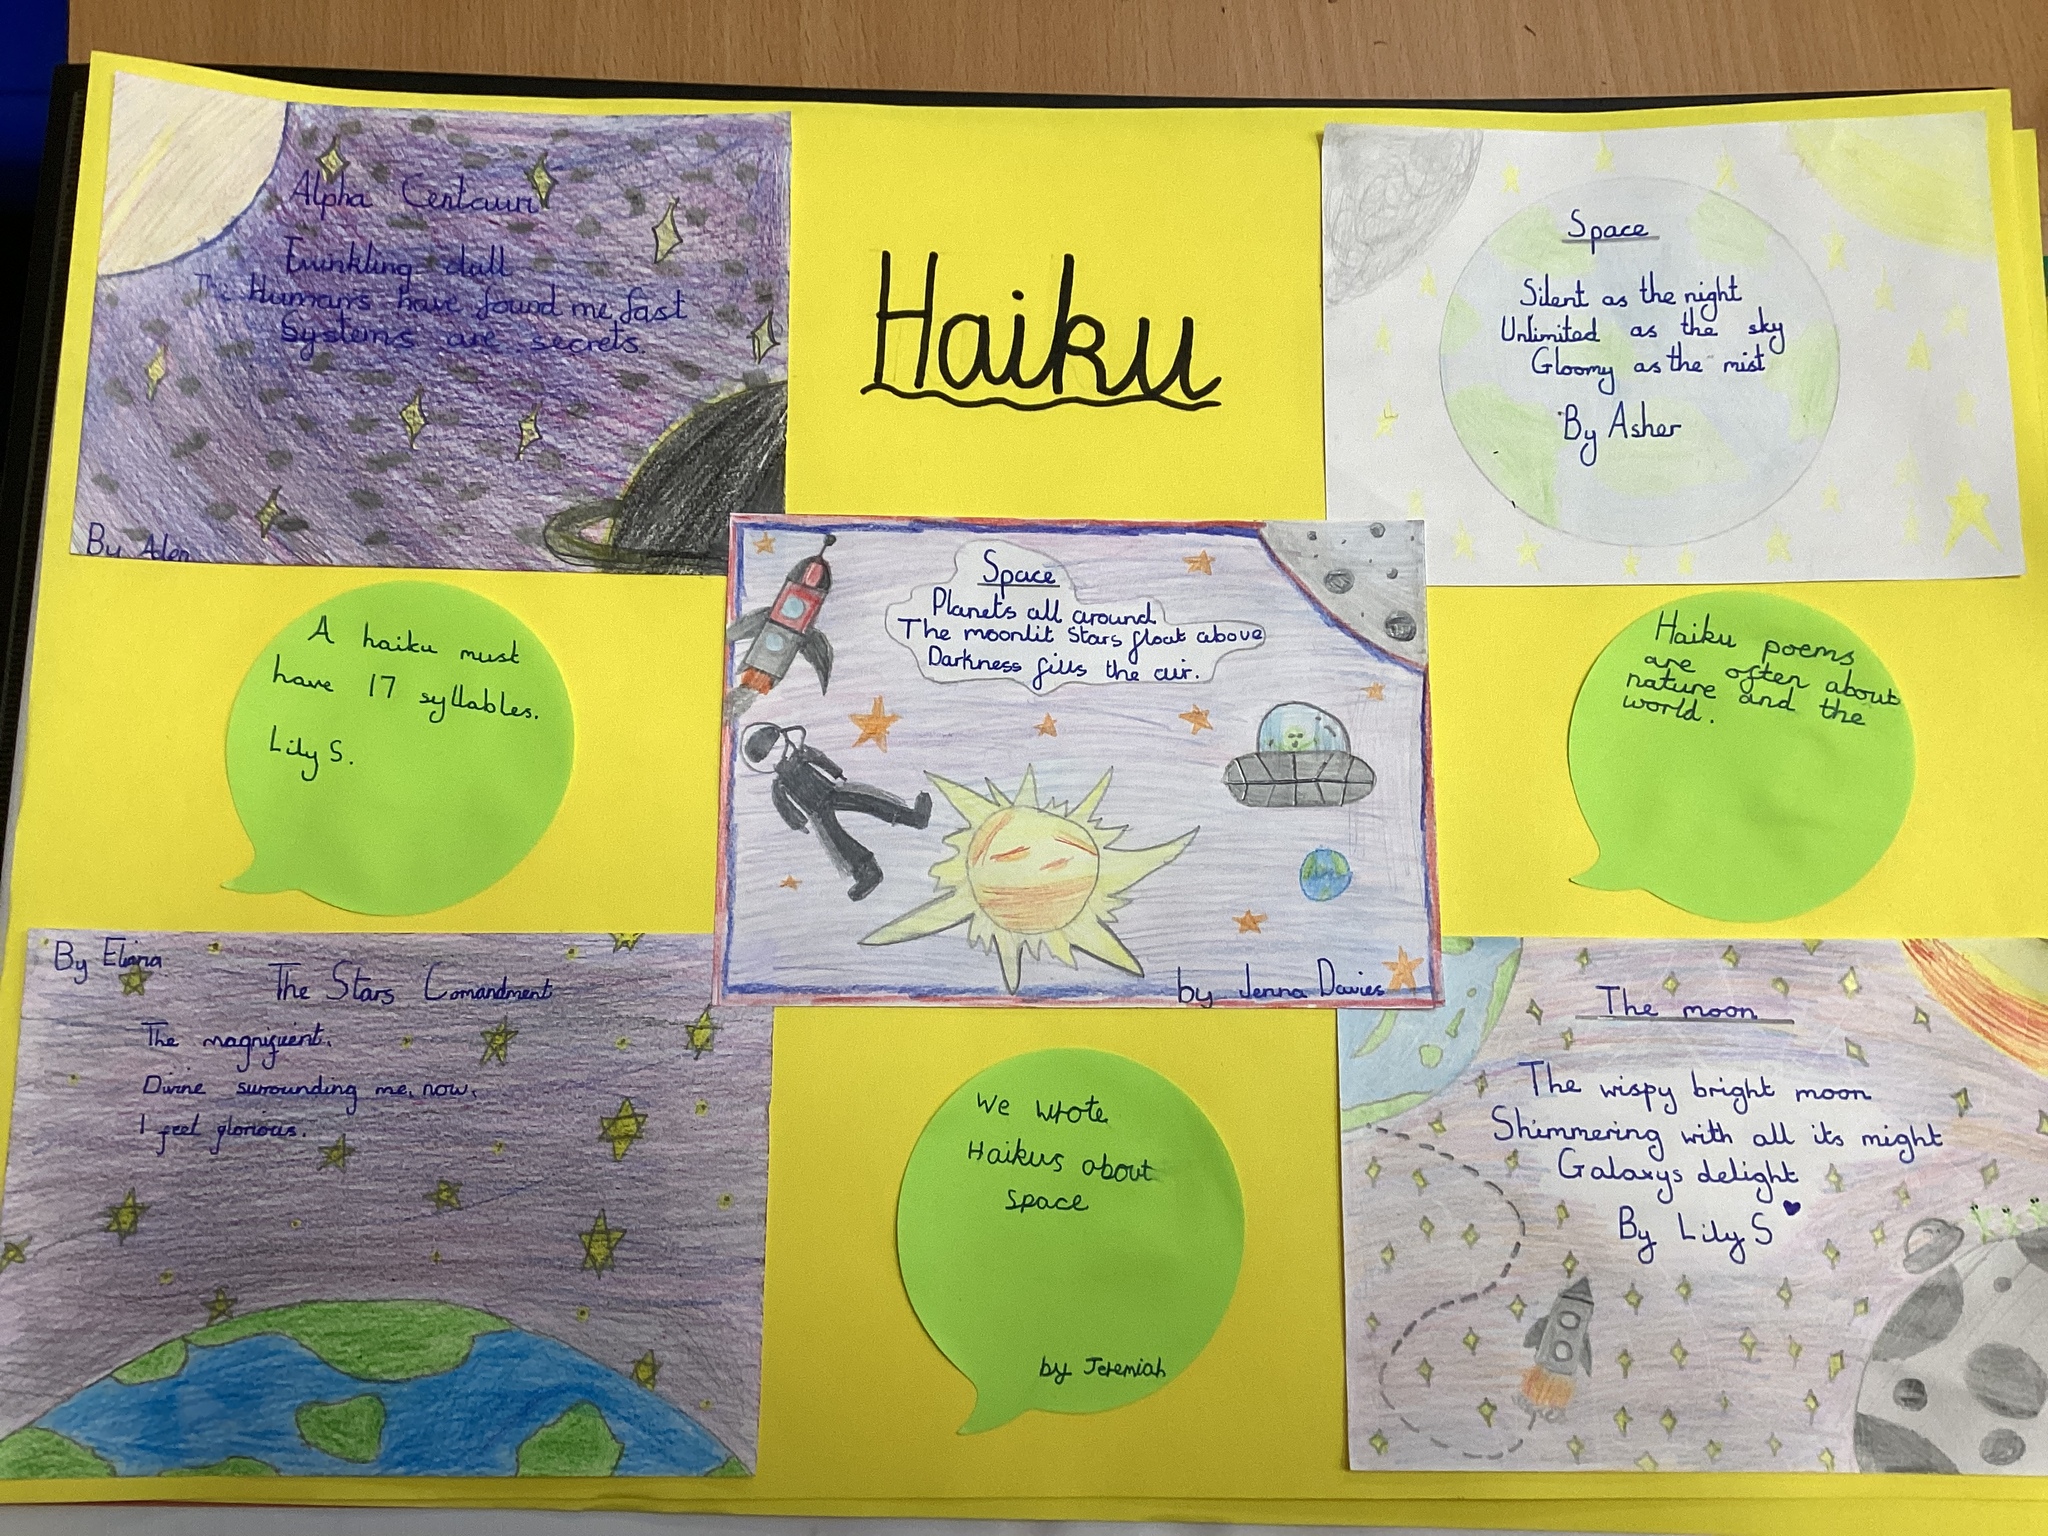 Alpha Centauri
Twinkling dull
The Humans have found me fast
Systems are secrets.
By Aden
Haiku
Space
Silent as the night
Unlimited as the sky
Gloomy as the mist
By Asher
A haiku must
have 17 syllables.
Lily S.
Space
Planets all around
The moonlit Stars float above
Darkness fills the air.
by Jenna Davies
Haiku poems
are often about
nature and the
world.
By Eliana
The Stars Comandment
The magnifient.
Divine surrounding me, now.
I feel glorious.
We wrote
Haikus about
Space
by Jeremiah
The moon
The wispy bright moon
Shimmering with all its might
Galaxys delight
By Lily S